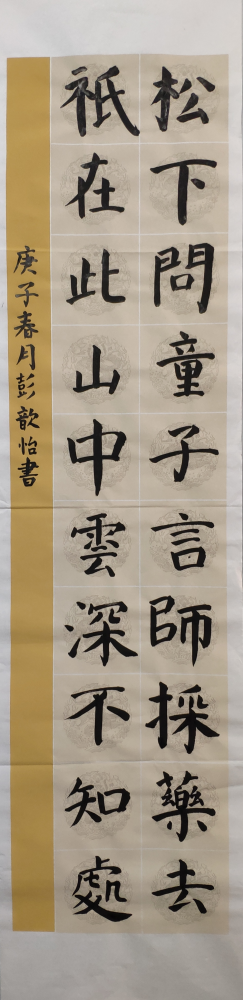 松下問童子言師採藥去
祇在此山中雲深不知處
庚子春月彭歆怡書